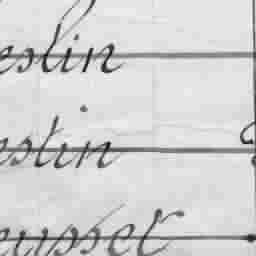 eslin
estin
eusset